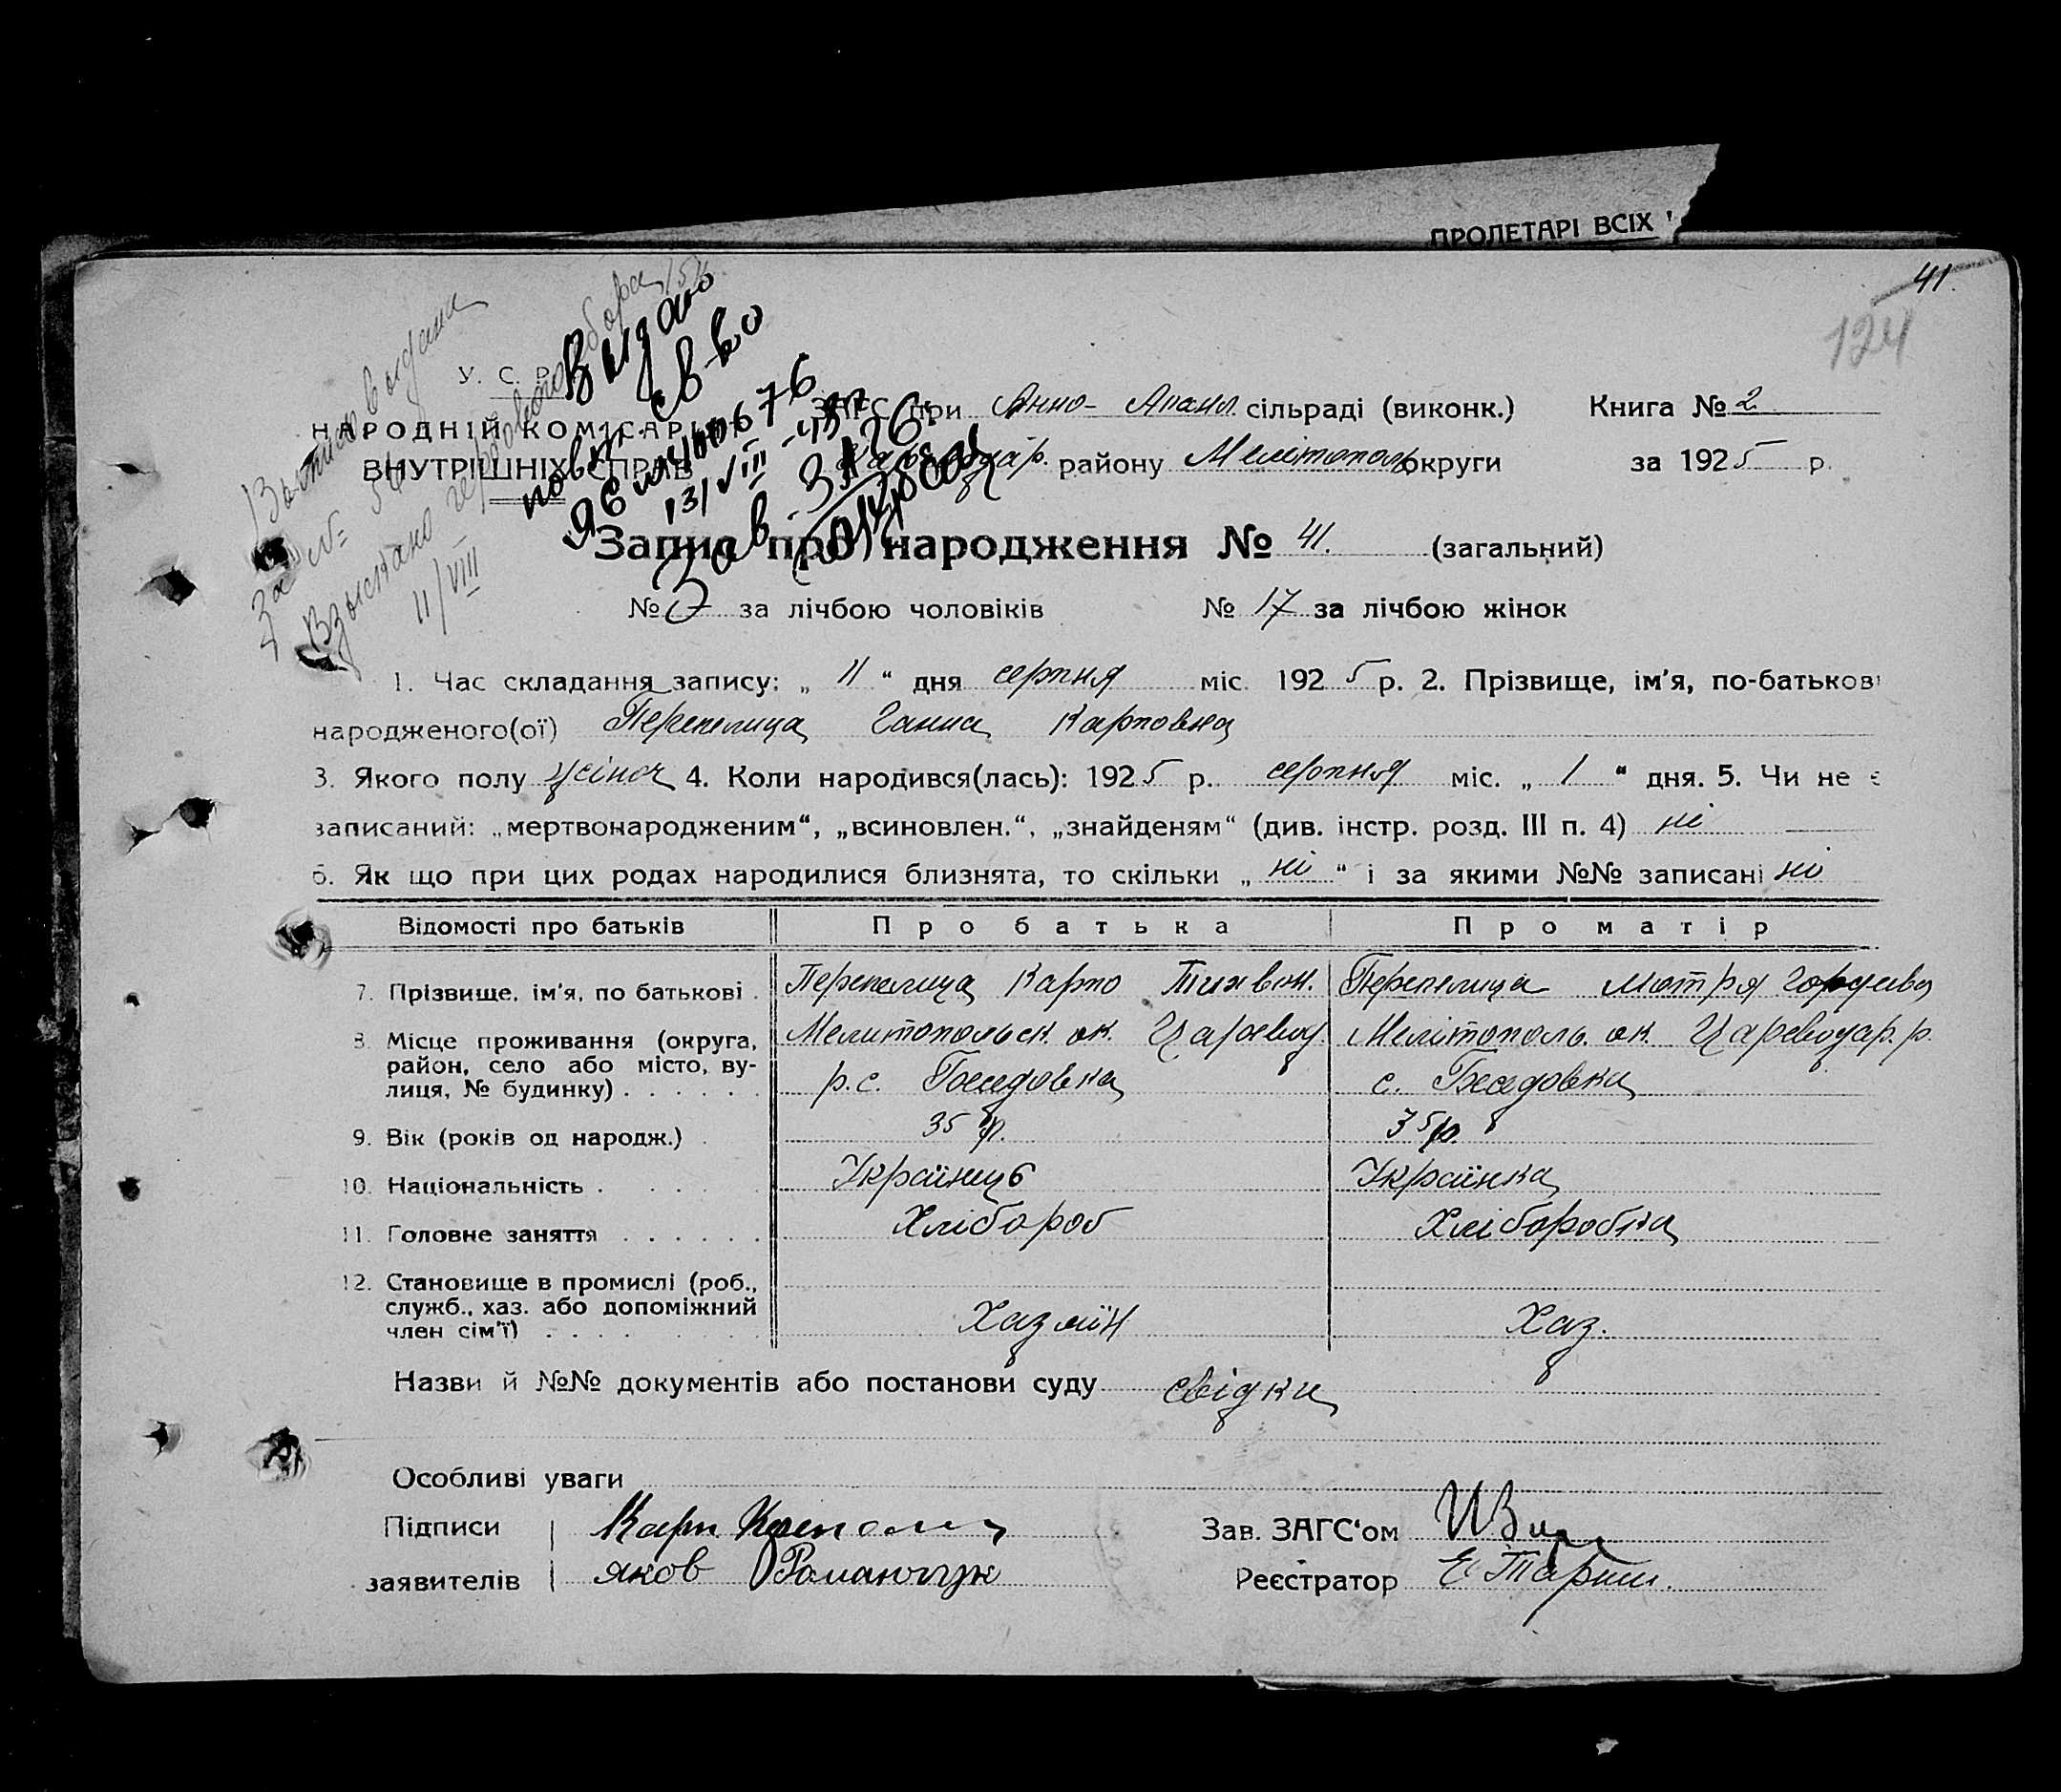 ПРОЛЕТАРІ ВСІХ
41.
124
У. С. Р. Р.
НАРОДНІЙ КОМІСАРІЯТ
ВНУТРІШНІХ СПРАВ
Выпись выдана
За №
Взыскано гербового сбора
11/VIII
Видано
повт. св-во
13/VIII
Зав. ЗАГС
ЗАГС при Анно- Апанл. сільраді (виконк.) Книга № 2
району Мелітополь округи за 1925 р.
Запис про народження № 41. (загальний)
№ за лічбою чоловіків № 17 за лічбою жінок
1. Час складання запису: „ 11 “ дня серпня міс. 1925 р. 2. Прізвище, ім'я, по-батькові
народженого(ої) Перепелица Ганна Карповна
3. Якого полу жіноч 4. Коли народився(лась): 1925 р. серпня міс. „ 1 “ дня. 5. Чи не є
записаний: „мертвонародженим“, „всиновлен.“, „знайденям“ (див. інстр. розд. III п. 4) ні
6. Як що при цих родах народилися близнята, то скільки „ ні “ і за якими №№ записані ні
Відомості про батьків Про батька Про матір
7. Прізвище, ім'я, по батькові . Перепелица Карпо Тихвон. Перепелица Мотря Гордиева
8. Місце проживання (округа, Мелитопольск. ок. Царевод. Мелітополь. ок. Цареводар. р.
район, село або місто, ву-
лиця, № будинку) . . . . . . р. с. Беседовка с. Беседовка
9. Вік (років од народж.) . 35 р. 35 р.
10. Національність . . . . . Українець Українка
11. Головне заняття . . . . . . Хлібороб Хліборобка
12. Становище в промислі (роб.,
служб., хаз. або допоміжний
член сім'ї) . . . . . . . . Хазяїн Хаз.
Назви й №№ документів або постанови суду свідки
Особливі уваги
Підписи Карп Зав. ЗАГС'ом
заявителів яков Романчук Реєстратор Е.